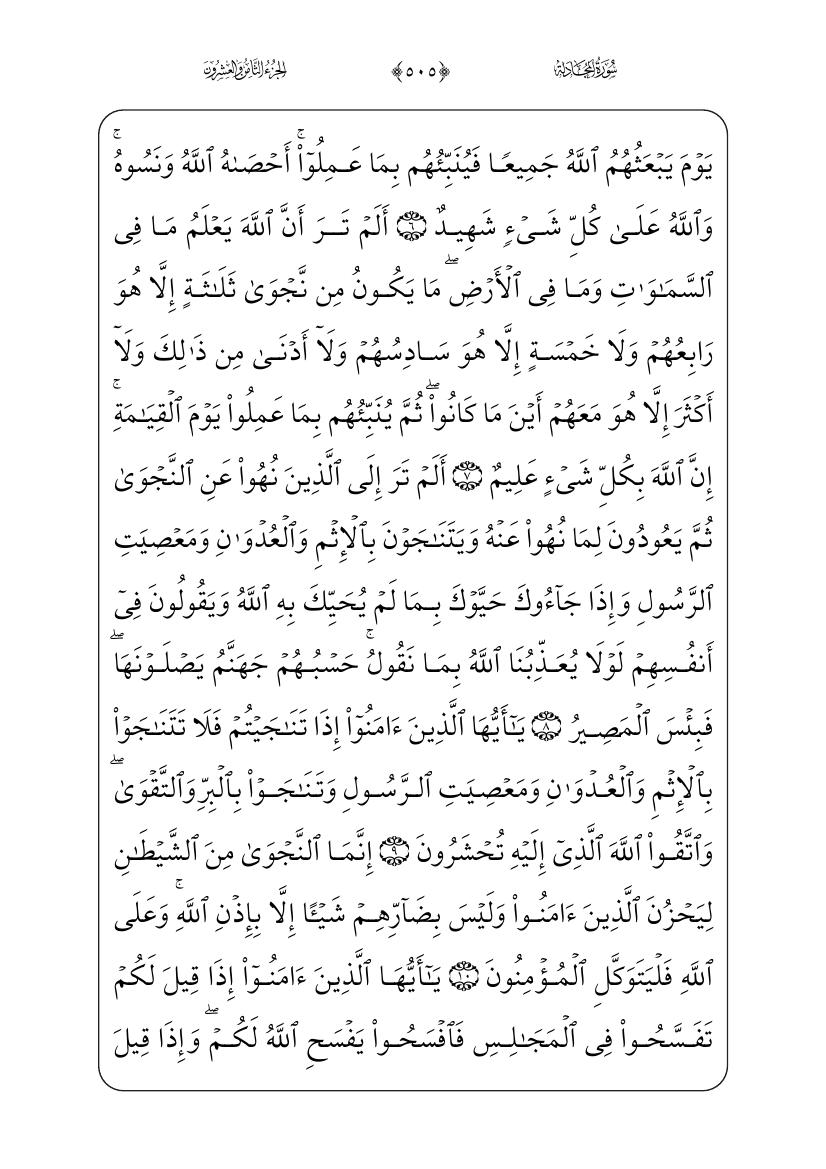 سُورَةُ المُجَادلة ﴿٥٠٥﴾ الجُزْءُ الثَّامِنُ وَالعِشْرُونَ
يَوۡمَ يَبۡعَثُهُمُ ٱللَّهُ جَمِيعٗا فَيُنَبِّئُهُم بِمَا عَمِلُوٓاْۚ أَحۡصَىٰهُ ٱللَّهُ وَنَسُوهُۚ
وَٱللَّهُ عَلَىٰ كُلِّ شَيۡءٖ شَهِيدٌ ٦ أَلَمۡ تَرَ أَنَّ ٱللَّهَ يَعۡلَمُ مَا فِي
ٱلسَّمَٰوَٰتِ وَمَا فِي ٱلۡأَرۡضِۖ مَا يَكُونُ مِن نَّجۡوَىٰ ثَلَٰثَةٍ إِلَّا هُوَ
رَابِعُهُمۡ وَلَا خَمۡسَةٍ إِلَّا هُوَ سَادِسُهُمۡ وَلَآ أَدۡنَىٰ مِن ذَٰلِكَ وَلَآ
أَكۡثَرَ إِلَّا هُوَ مَعَهُمۡ أَيۡنَ مَا كَانُواْۖ ثُمَّ يُنَبِّئُهُم بِمَا عَمِلُواْ يَوۡمَ ٱلۡقِيَٰمَةِۚ
إِنَّ ٱللَّهَ بِكُلِّ شَيۡءٍ عَلِيمٌ ٧ أَلَمۡ تَرَ إِلَى ٱلَّذِينَ نُهُواْ عَنِ ٱلنَّجۡوَىٰ
ثُمَّ يَعُودُونَ لِمَا نُهُواْ عَنۡهُ وَيَتَنَٰجَوۡنَ بِٱلۡإِثۡمِ وَٱلۡعُدۡوَٰنِ وَمَعۡصِيَتِ
ٱلرَّسُولِ وَإِذَا جَآءُوكَ حَيَّوۡكَ بِمَا لَمۡ يُحَيِّكَ بِهِ ٱللَّهُ وَيَقُولُونَ فِيٓ
أَنفُسِهِمۡ لَوۡلَا يُعَذِّبُنَا ٱللَّهُ بِمَا نَقُولُۚ حَسۡبُهُمۡ جَهَنَّمُ يَصۡلَوۡنَهَاۖ
فَبِئۡسَ ٱلۡمَصِيرُ ٨ يَٰٓأَيُّهَا ٱلَّذِينَ ءَامَنُوٓاْ إِذَا تَنَٰجَيۡتُمۡ فَلَا تَتَنَٰجَوۡاْ
بِٱلۡإِثۡمِ وَٱلۡعُدۡوَٰنِ وَمَعۡصِيَتِ ٱلرَّسُولِ وَتَنَٰجَوۡاْ بِٱلۡبِرِّ وَٱلتَّقۡوَىٰۖ
وَٱتَّقُواْ ٱللَّهَ ٱلَّذِيٓ إِلَيۡهِ تُحۡشَرُونَ ٩ إِنَّمَا ٱلنَّجۡوَىٰ مِنَ ٱلشَّيۡطَٰنِ
لِيَحۡزُنَ ٱلَّذِينَ ءَامَنُواْ وَلَيۡسَ بِضَآرِّهِمۡ شَيۡـًٔا إِلَّا بِإِذۡنِ ٱللَّهِۚ وَعَلَى
ٱللَّهِ فَلۡيَتَوَكَّلِ ٱلۡمُؤۡمِنُونَ ١٠ يَٰٓأَيُّهَا ٱلَّذِينَ ءَامَنُوٓاْ إِذَا قِيلَ لَكُمۡ
تَفَسَّحُواْ فِي ٱلۡمَجَٰلِسِ فَٱفۡسَحُواْ يَفۡسَحِ ٱللَّهُ لَكُمۡۖ وَإِذَا قِيلَ